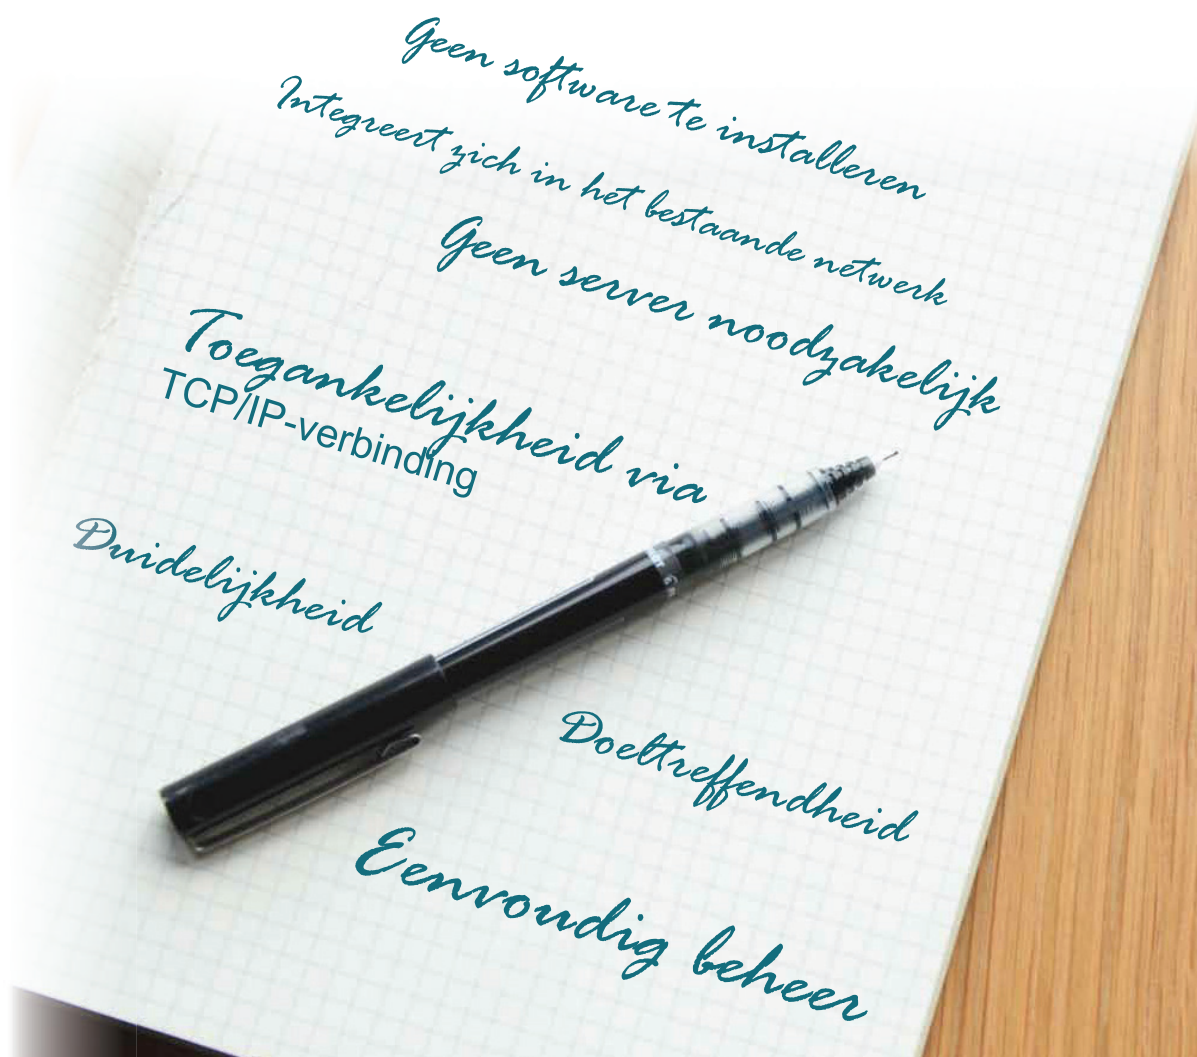 Geen software te installeren
Integreert zich in het bestaande netwerk
Geen server noodzakelijk
Toegankelijkheid via
TCP/IP-verbinding
Duidelijkheid
Doeltreffendheid
Eenvoudig beheer